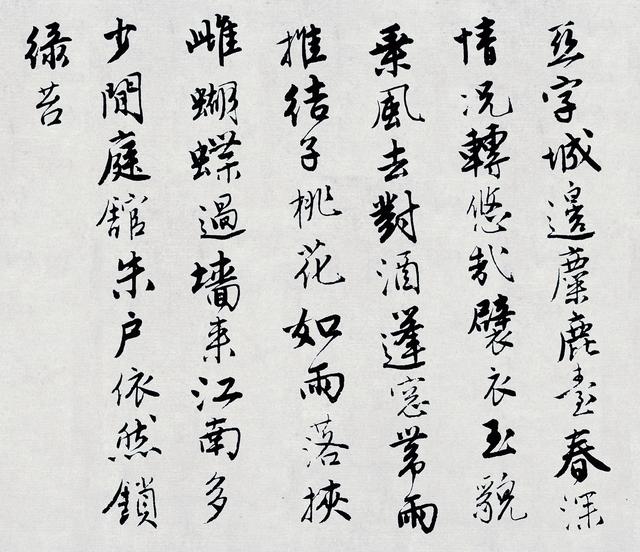 亞字城邊麋鹿臺春深
情況轉悠哉襞衣玉貌
乘風去對酒蓬窓帶雨
推結子桃花如雨落挾
雌蝴蝶過墻来江南多
少閒庭館朱戶依然鎖
綠苔